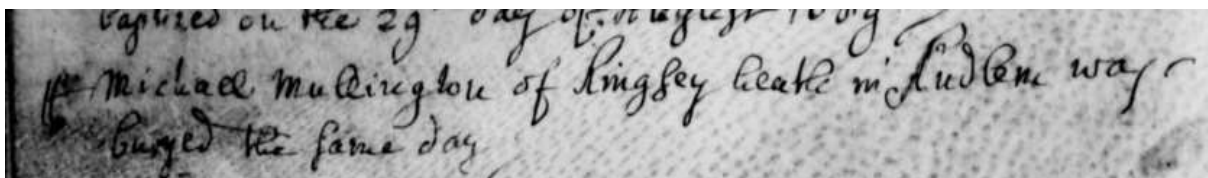 baptized on the 29th day of August 1689
Michael Mullington of Kingsey heath in Audlem was
buryed the same day